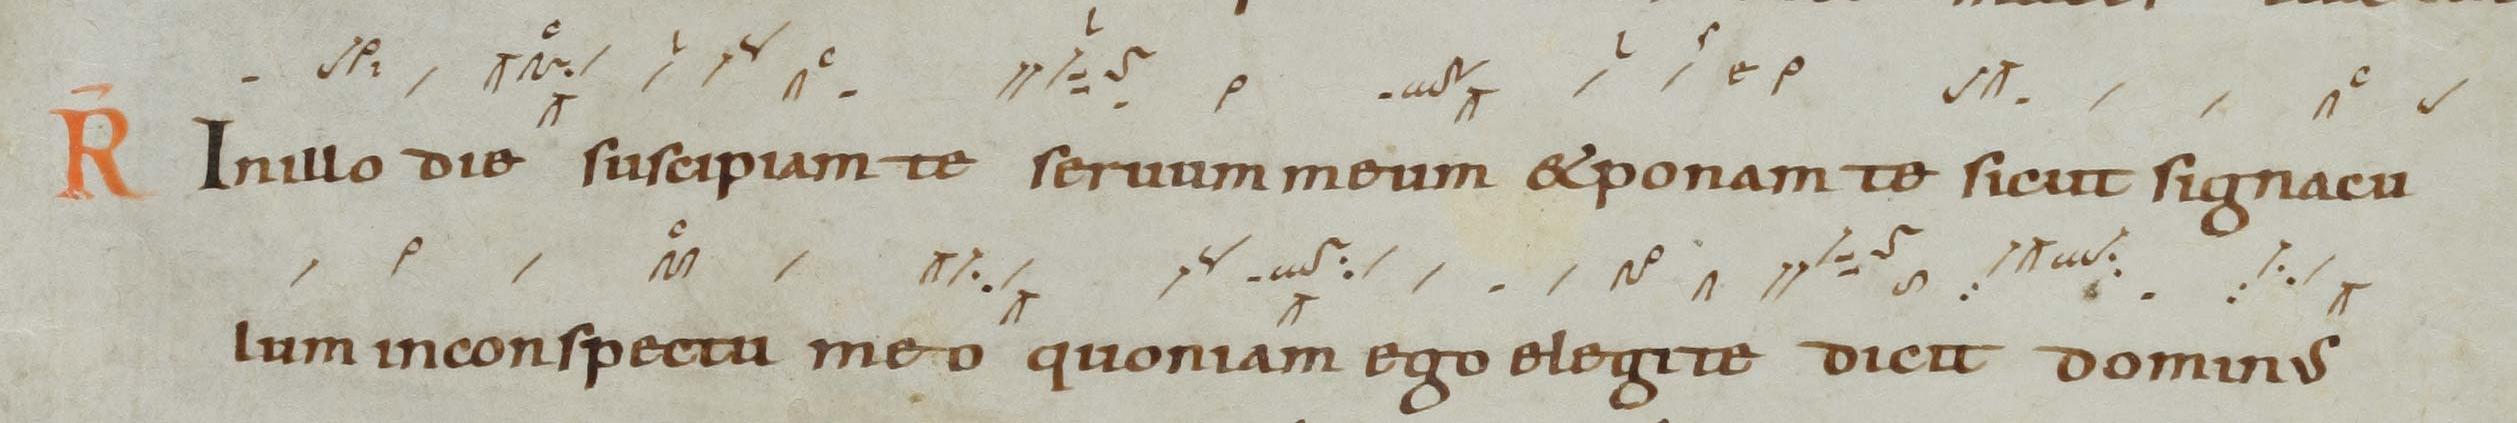 R̄ Inillo die suscipiam te seruum meum &ponam te sicut signacu
lum inconspectu meo quoniam ego elegite dicit dominus